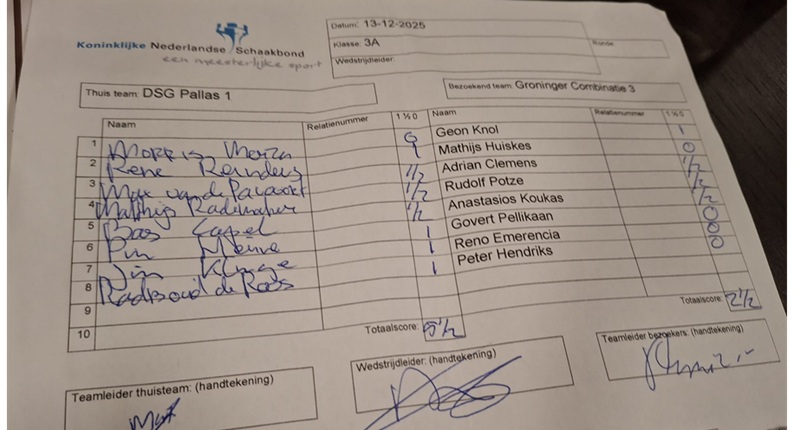 Koninklijke Nederlandse Schaakbond
een meesterlijke sport
Datum: 13-12-2025
Klasse: 3A
Ronde
Wedstrijdleider:
Thuis team: DSG Pallas 1
Bezoekend team: Groninger Combinatie 3
Naam Relatienummer 1 ½ 0 Naam Relatienummer 1 ½ 0
1 0 Geon Knol 1
2 René Reinders 1 Mathijs Huiskes 0
3 Max van de 1/2 Adrian Clemens 1/2
4 Matthijs Rademaker 1/2 Rudolf Potze 1/2
5 Bas Capel 1/2 Anastasios Koukas 1/2
6 Pim 1 Govert Pellikaan 0
7 Kleinje 1 Reno Emerencia 0
8 Radboud de Roos 1 Peter Hendriks 0
9
10
Totaalscore: 5 1/2
Totaalscore: 2 1/2
Teamleider thuisteam: (handtekening)
Wedstrijdleider: (handtekening)
Teamleider bezoekers: (handtekening)